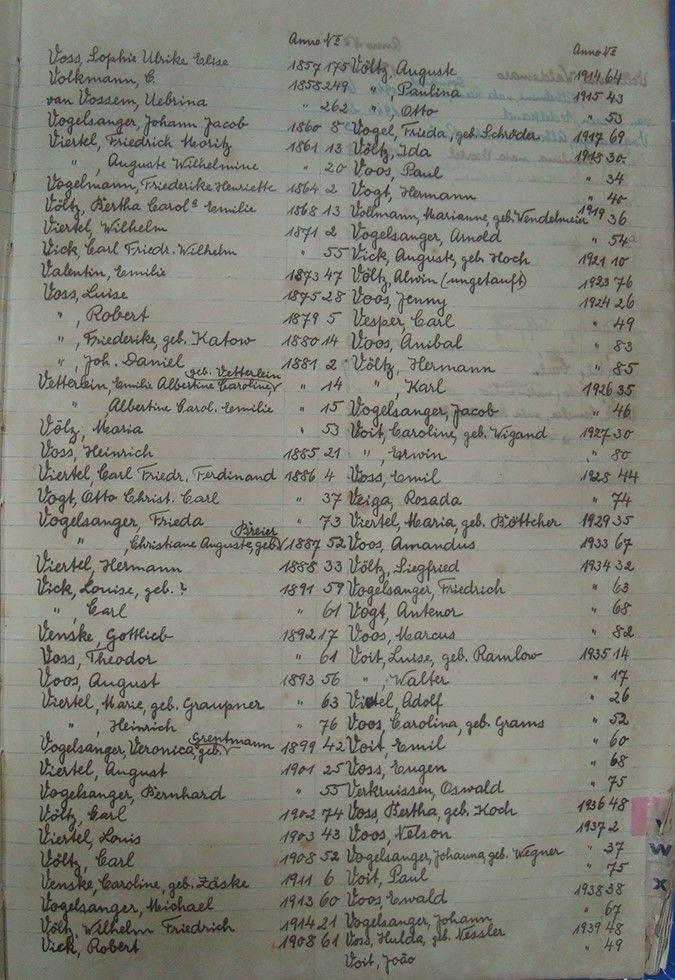 Anno No
Voss, Sophie Ulrike Elise 1857 175
Volkmann, C. 1858 249
van Vossem, Uebrina " 262
Vogelsanger, Johann Jacob 1860 8
Viertel, Friedrich Moritz 1861 13
" , Auguste Wilhelmine " 20
Vogelmann, Friederike Henriette 1864 2
Völtz, Bertha Carol.a Emilie 1868 13
Viertel, Wilhelm 1871 2
Vick, Carl Friedr. Wilhelm " 55
Valentin, Emilie 1873 47
Voss, Luise 1875 28
" , Robert 1879 5
" , Friederike, geb. Katow 1880 14
" , Joh. Daniel 1881 2
geb. Vetterlein
Vetterlein, Emilie Albertine Caroline, " 14
" Albertine Carol. Emilie " 15
Völz, Maria " 53
Voss, Heinrich 1885 21
Viertel, Carl Friedr. Ferdinand 1886 4
Vogt, Otto Christ. Carl " 37
Vogelsanger, Frieda " 73
Breier
" , Christiane Auguste, geb. 1887 52
Viertel, Hermann 1888 33
Vick, Louise, geb. ? 1891 59
" , Carl " 61
Venske, Gottlieb 1892 17
Voss, Theodor " 61
Voos, August 1893 56
Viertel, Marie, geb. Graupner " 63
" , Heinrich " 76
Grentmann
Vogelsanger, Veronica, geb. 1899 42
Viertel, August 1901 25
Vogelsanger, Bernhard " 55
Völtz, Carl 1902 74
Viertel, Louis 1903 43
Völtz, Carl 1908 52
Venske, Caroline, geb. Zäske 1911 6
Vogelsanger, Michael 1913 60
Völtz, Wilhelm Friedrich 1914 21
Vick, Robert 1908 61
Anno No
Völtz, Auguste 1914 64
" , Paulina 1915 43
" , Otto " 53
Vogel, Frieda, geb. Schröder 1917 69
Völtz, Ida 1918 30
Voos, Paul " 34
Vogt, Hermann " 40
Vollmann, Marianne, geb. Wendelmeier 1919 36
Vogelsanger, Arnold " 54a
Vick, Auguste, geb. Hoch 1921 10
Völtz, Alwin (ungetauft) 1923 76
Voos, Jenny 1924 26
Vesper, Carl " 49
Voos, Anibal " 83
Völtz, Hermann " 85
" , Karl 1926 35
Vogelsanger, Jacob " 46
Voit, Caroline, geb. Wigand 1927 30
" , Erwin " 80
Voss, Emil 1928 44
Veiga, Rosada " 74
Viertel, Maria, geb. Böttcher 1929 35
Voos, Amandus 1933 67
Völtz, Siegfried 1934 32
Vogelsanger, Friedrich " 63
Vogt, Antenor " 68
Voos, Marcus " 82
Voit, Luise, geb. Ramlow 1935 14
" , Walter " 17
Viertel, Adolf " 26
Voos, Carolina, geb. Grams " 52
Voit, Emil " 60
Voss, Eugen " 68
Verkruissen, Oswald " 75
Voss, Bertha, geb. Koch 1936 48
Voos, Nelson 1937 2
Vogelsanger, Johanna, geb. Wegner " 37
Voit, Paul " 75
Voos Ewald 1938 38
Vogelsanger, Johann " 67
Voss, Hulda, geb. Nessler 1939 48
Voit, João " 49
V
W
X